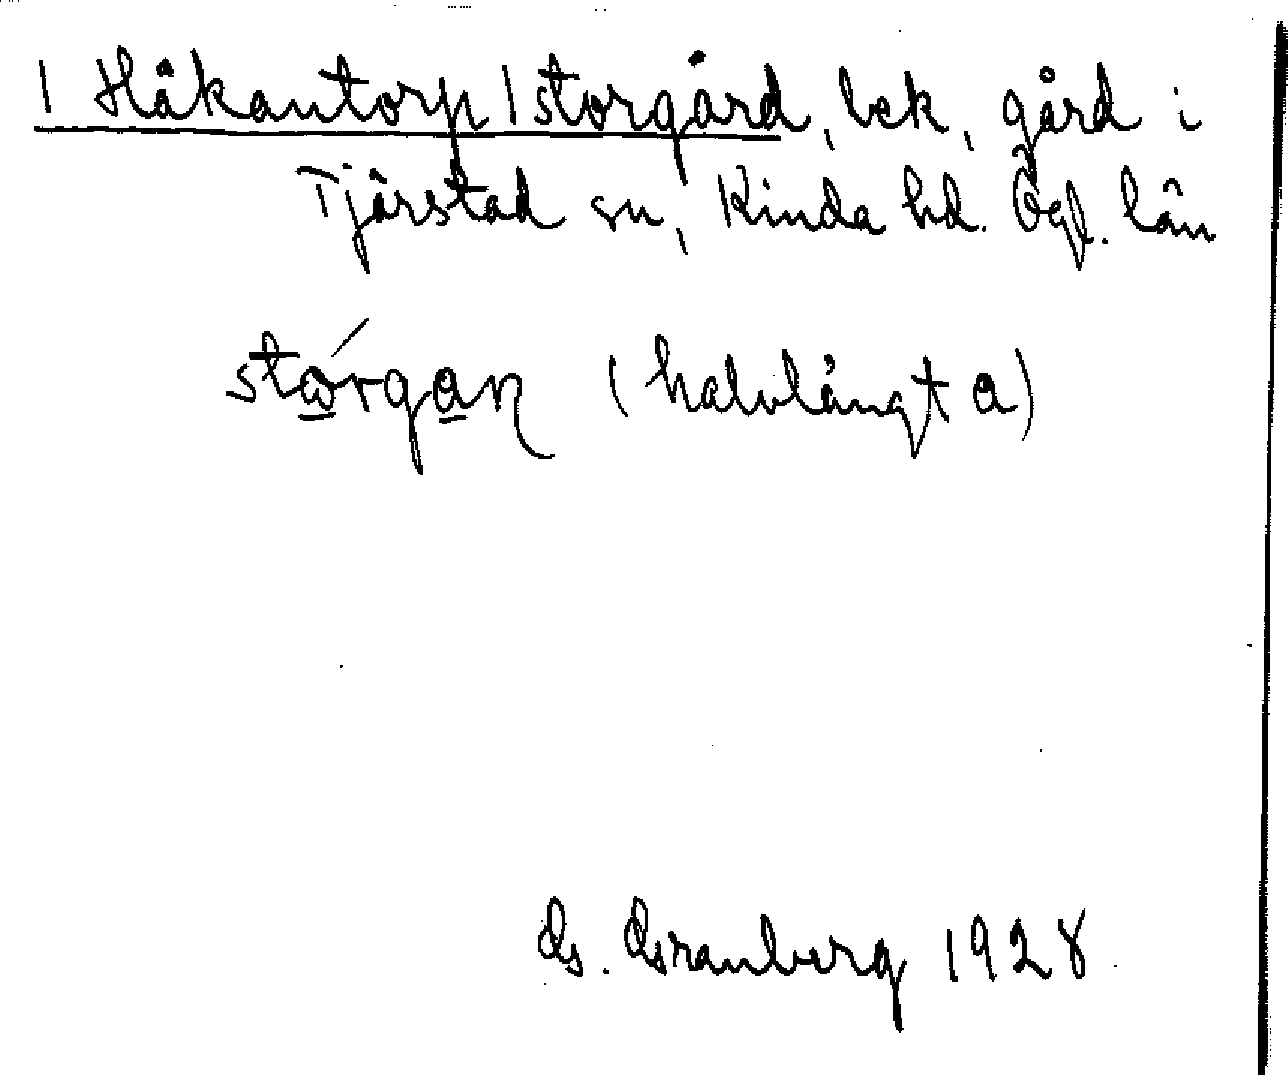 | Håkantorp | storgård, bek, gård i
Tjärstad sn, Kinda hd. Ögl. län
stórgan (halvlångt a)
G. Granberg 1928